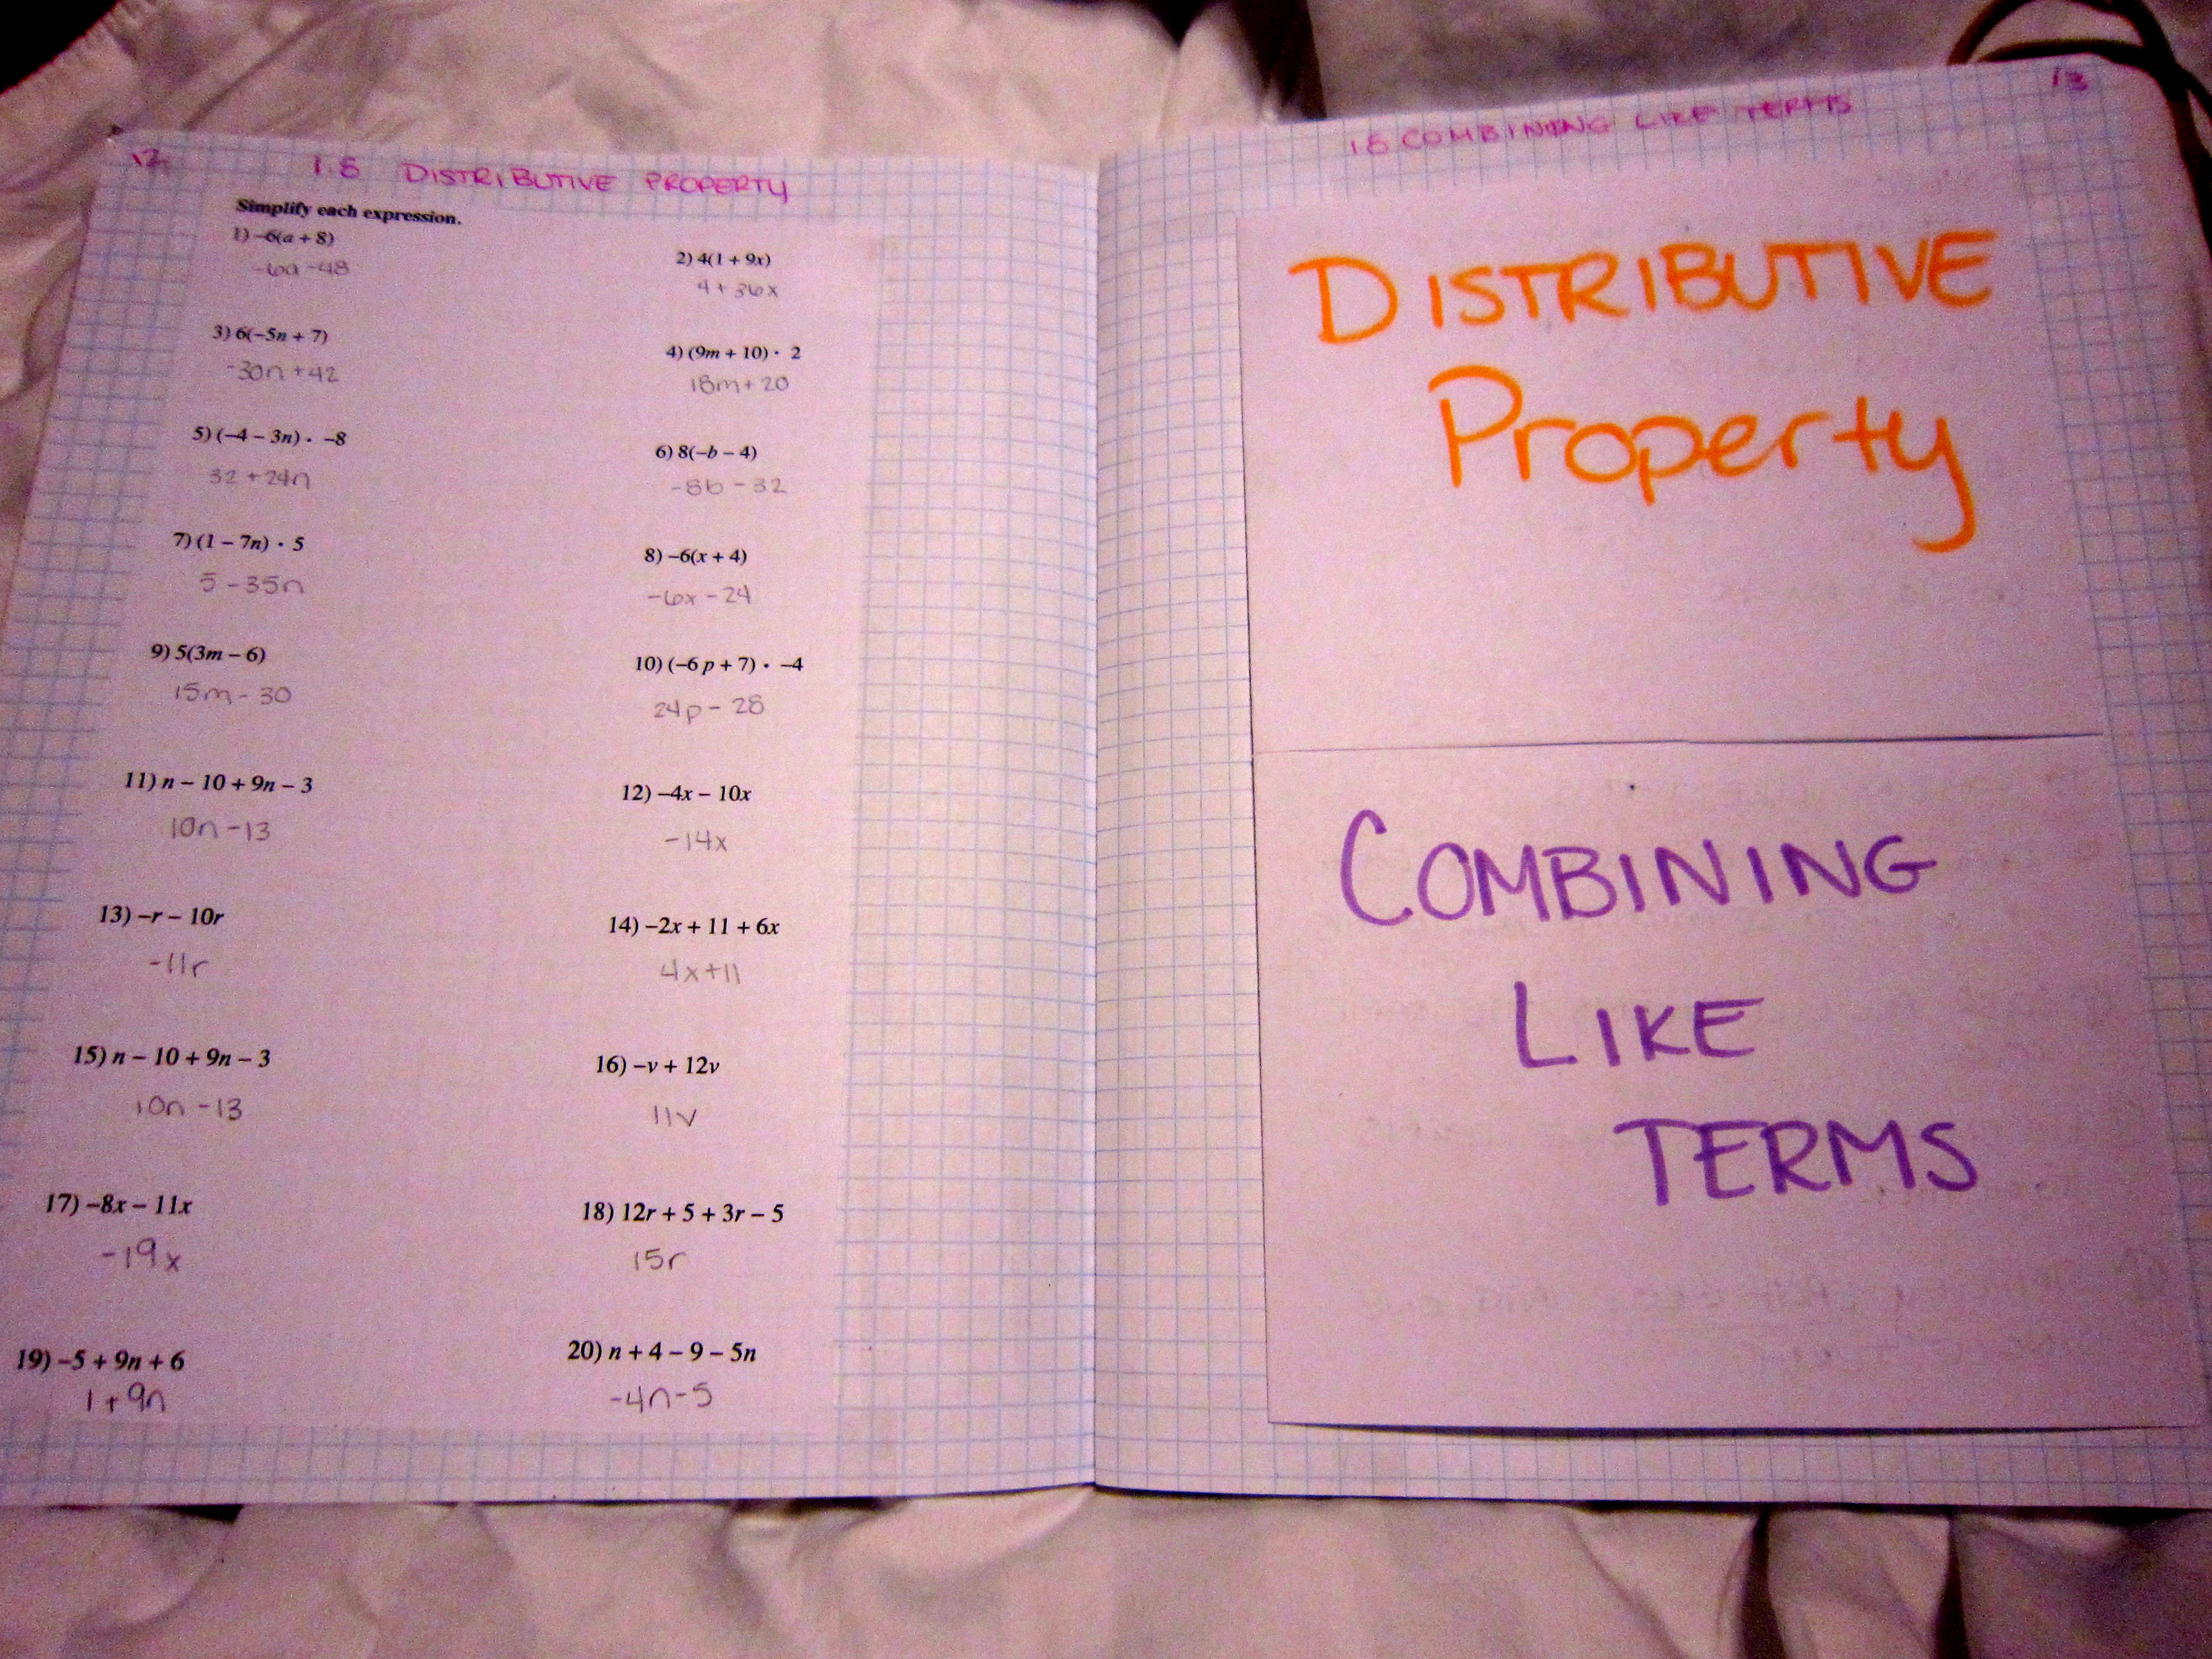 12
1.8 DISTRIBUTIVE PROPERTY
Simplify each expression.
1) –6(a + 8)
-6a -48
2) 4(1 + 9x)
4 + 36x
3) 6(–5n + 7)
-30n +42
4) (9m + 10) · 2
18m + 20
5) (–4 – 3n) · –8
32 + 24n
6) 8(–b – 4)
-8b - 32
7) (1 – 7n) · 5
5 - 35n
8) –6(x + 4)
-6x - 24
9) 5(3m – 6)
15m - 30
10) (–6p + 7) · –4
24p - 28
11) n – 10 + 9n – 3
10n -13
12) –4x – 10x
-14x
13) –r – 10r
-11r
14) –2x + 11 + 6x
4x+11
15) n – 10 + 9n – 3
10n -13
16) –v + 12v
11v
17) –8x – 11x
-19x
18) 12r + 5 + 3r – 5
15r
19) –5 + 9n + 6
1 + 9n
20) n + 4 – 9 – 5n
-4n-5
13
1.8 COMBINING LIKE TERMS
DISTRIBUTIVE
Property
COMBINING
LIKE
TERMS